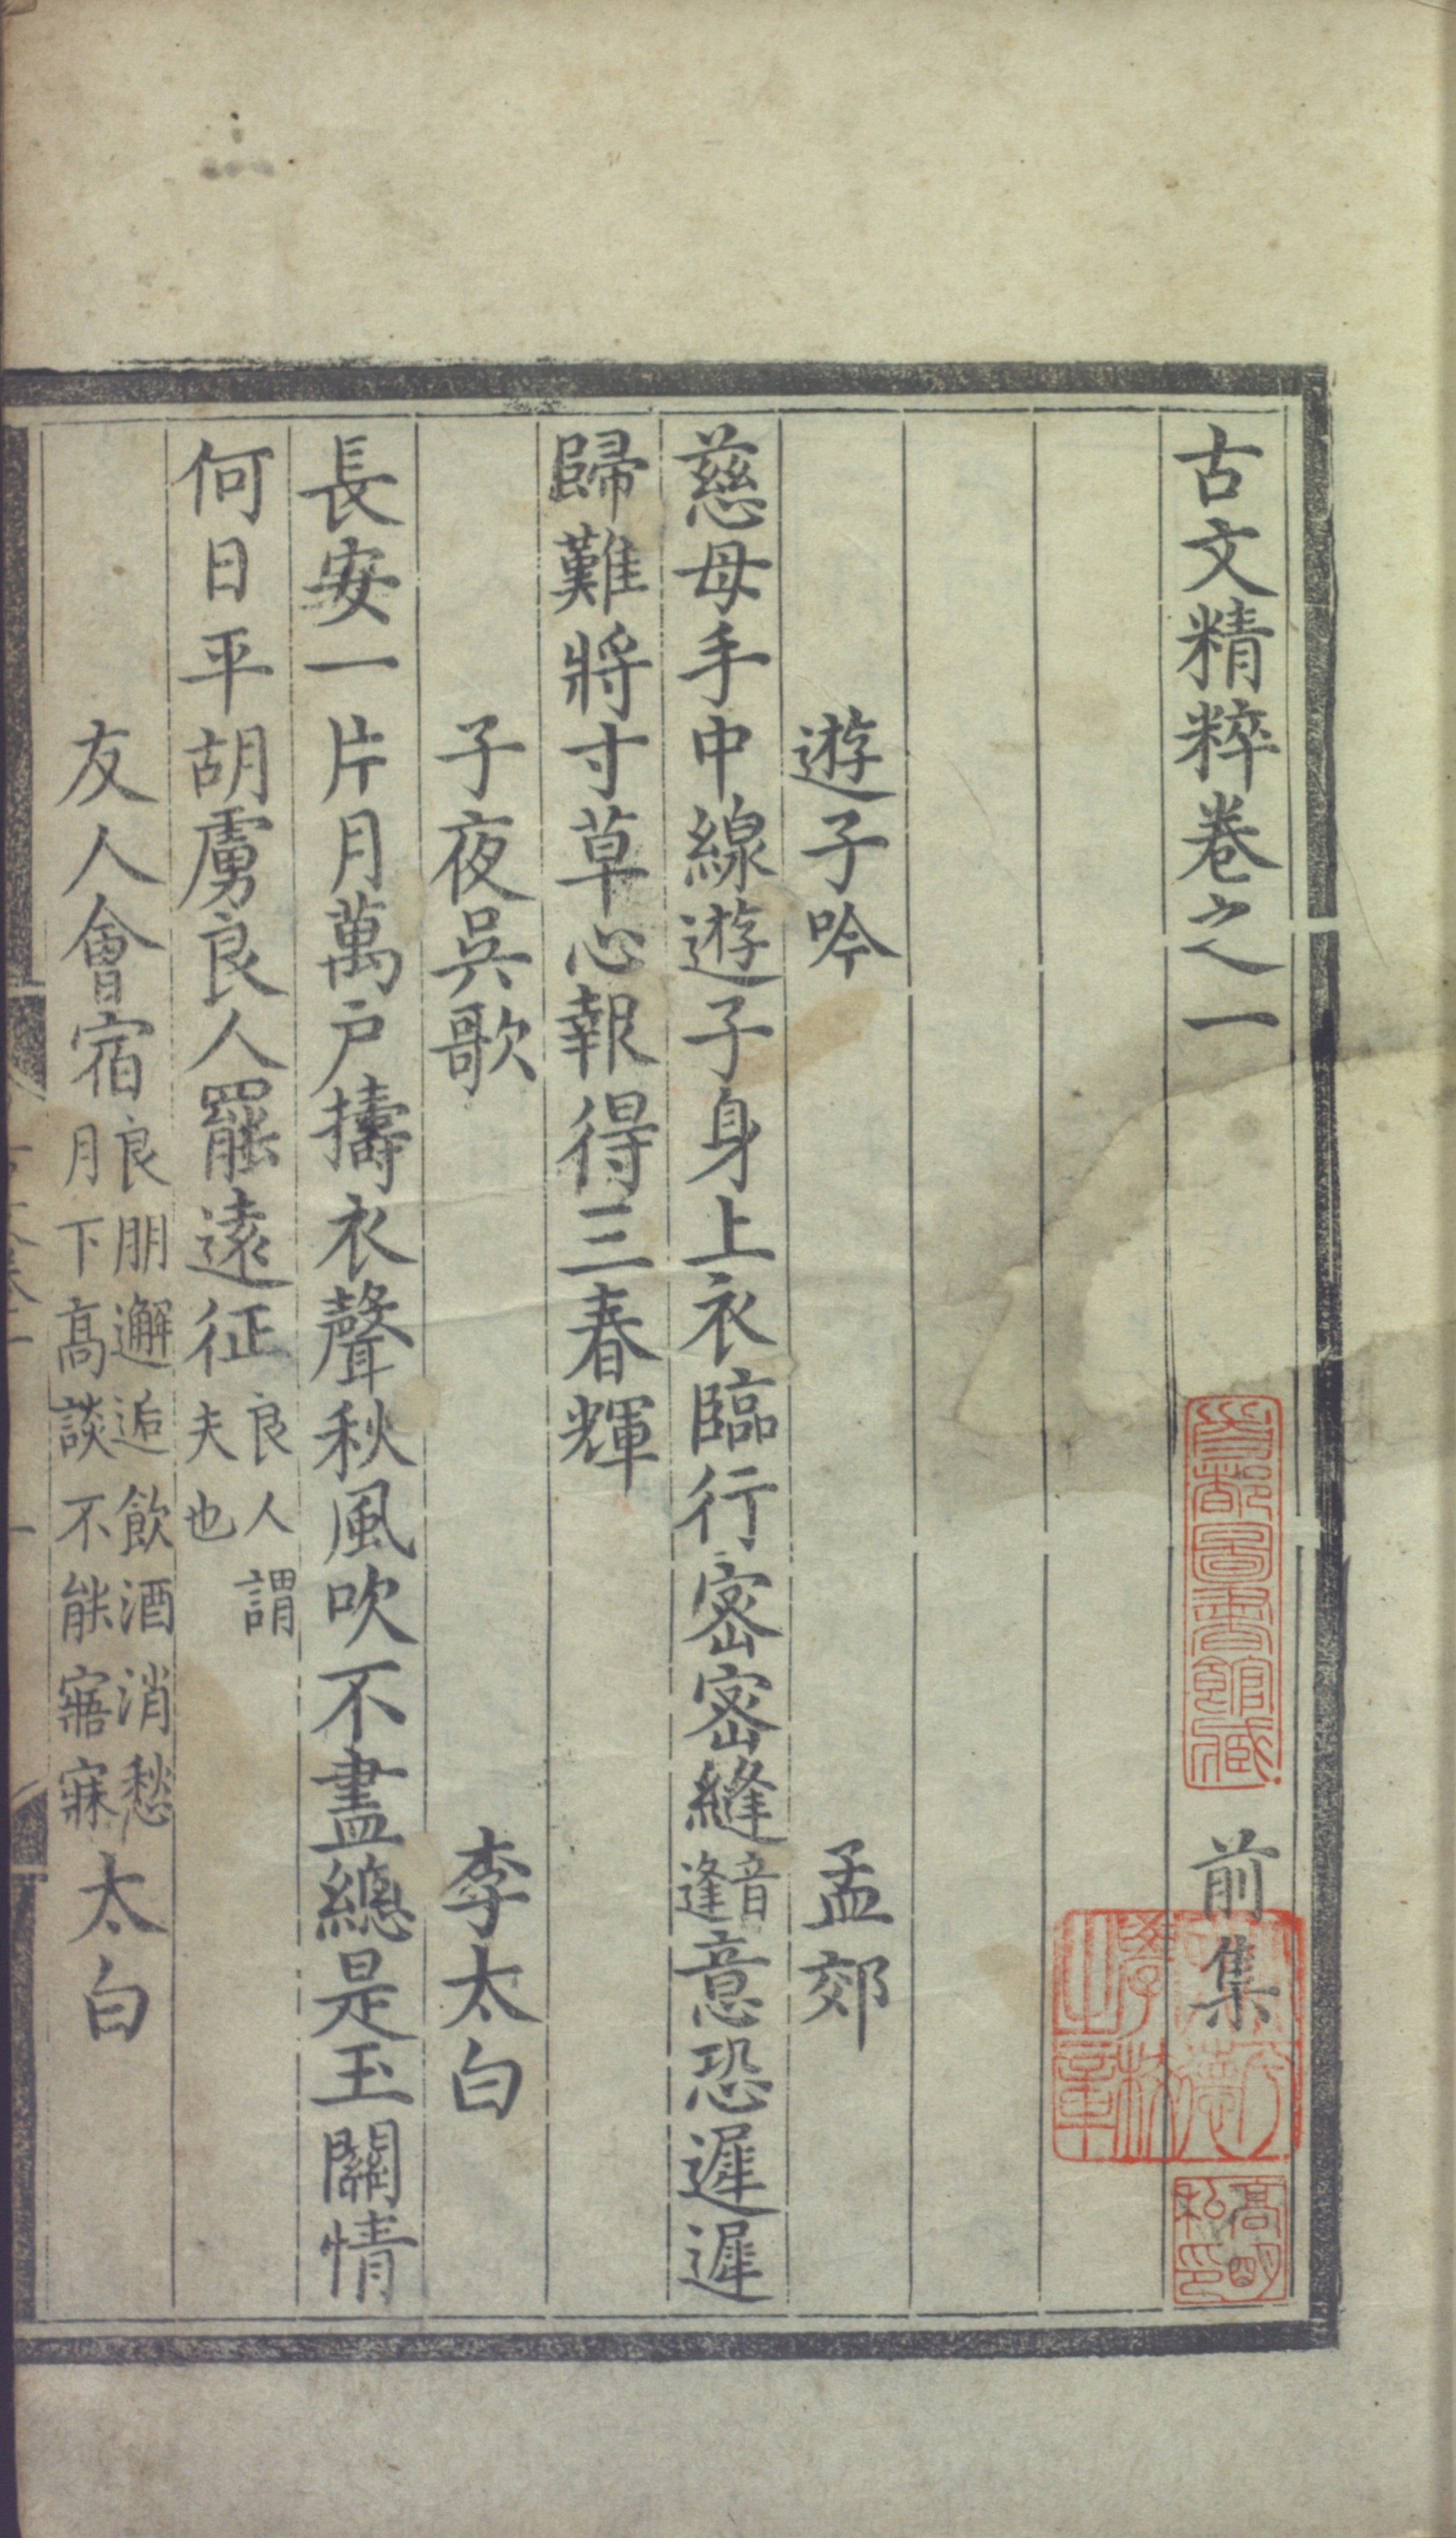 古文精粹卷之一　前集
遊子吟　孟郊
慈母手中線遊子身上衣臨行密密縫音逢意恐遲遲
歸難將寸草心報得三春輝
子夜吳歌　李太白
長安一片月萬戶擣衣聲秋風吹不盡緫是玉關情
何日平胡虜良人罷遠征良人謂夫也
友人會宿良朋邂逅飲酒消愁月下高談不能寤寐太白
首都圖書館藏
高明私印